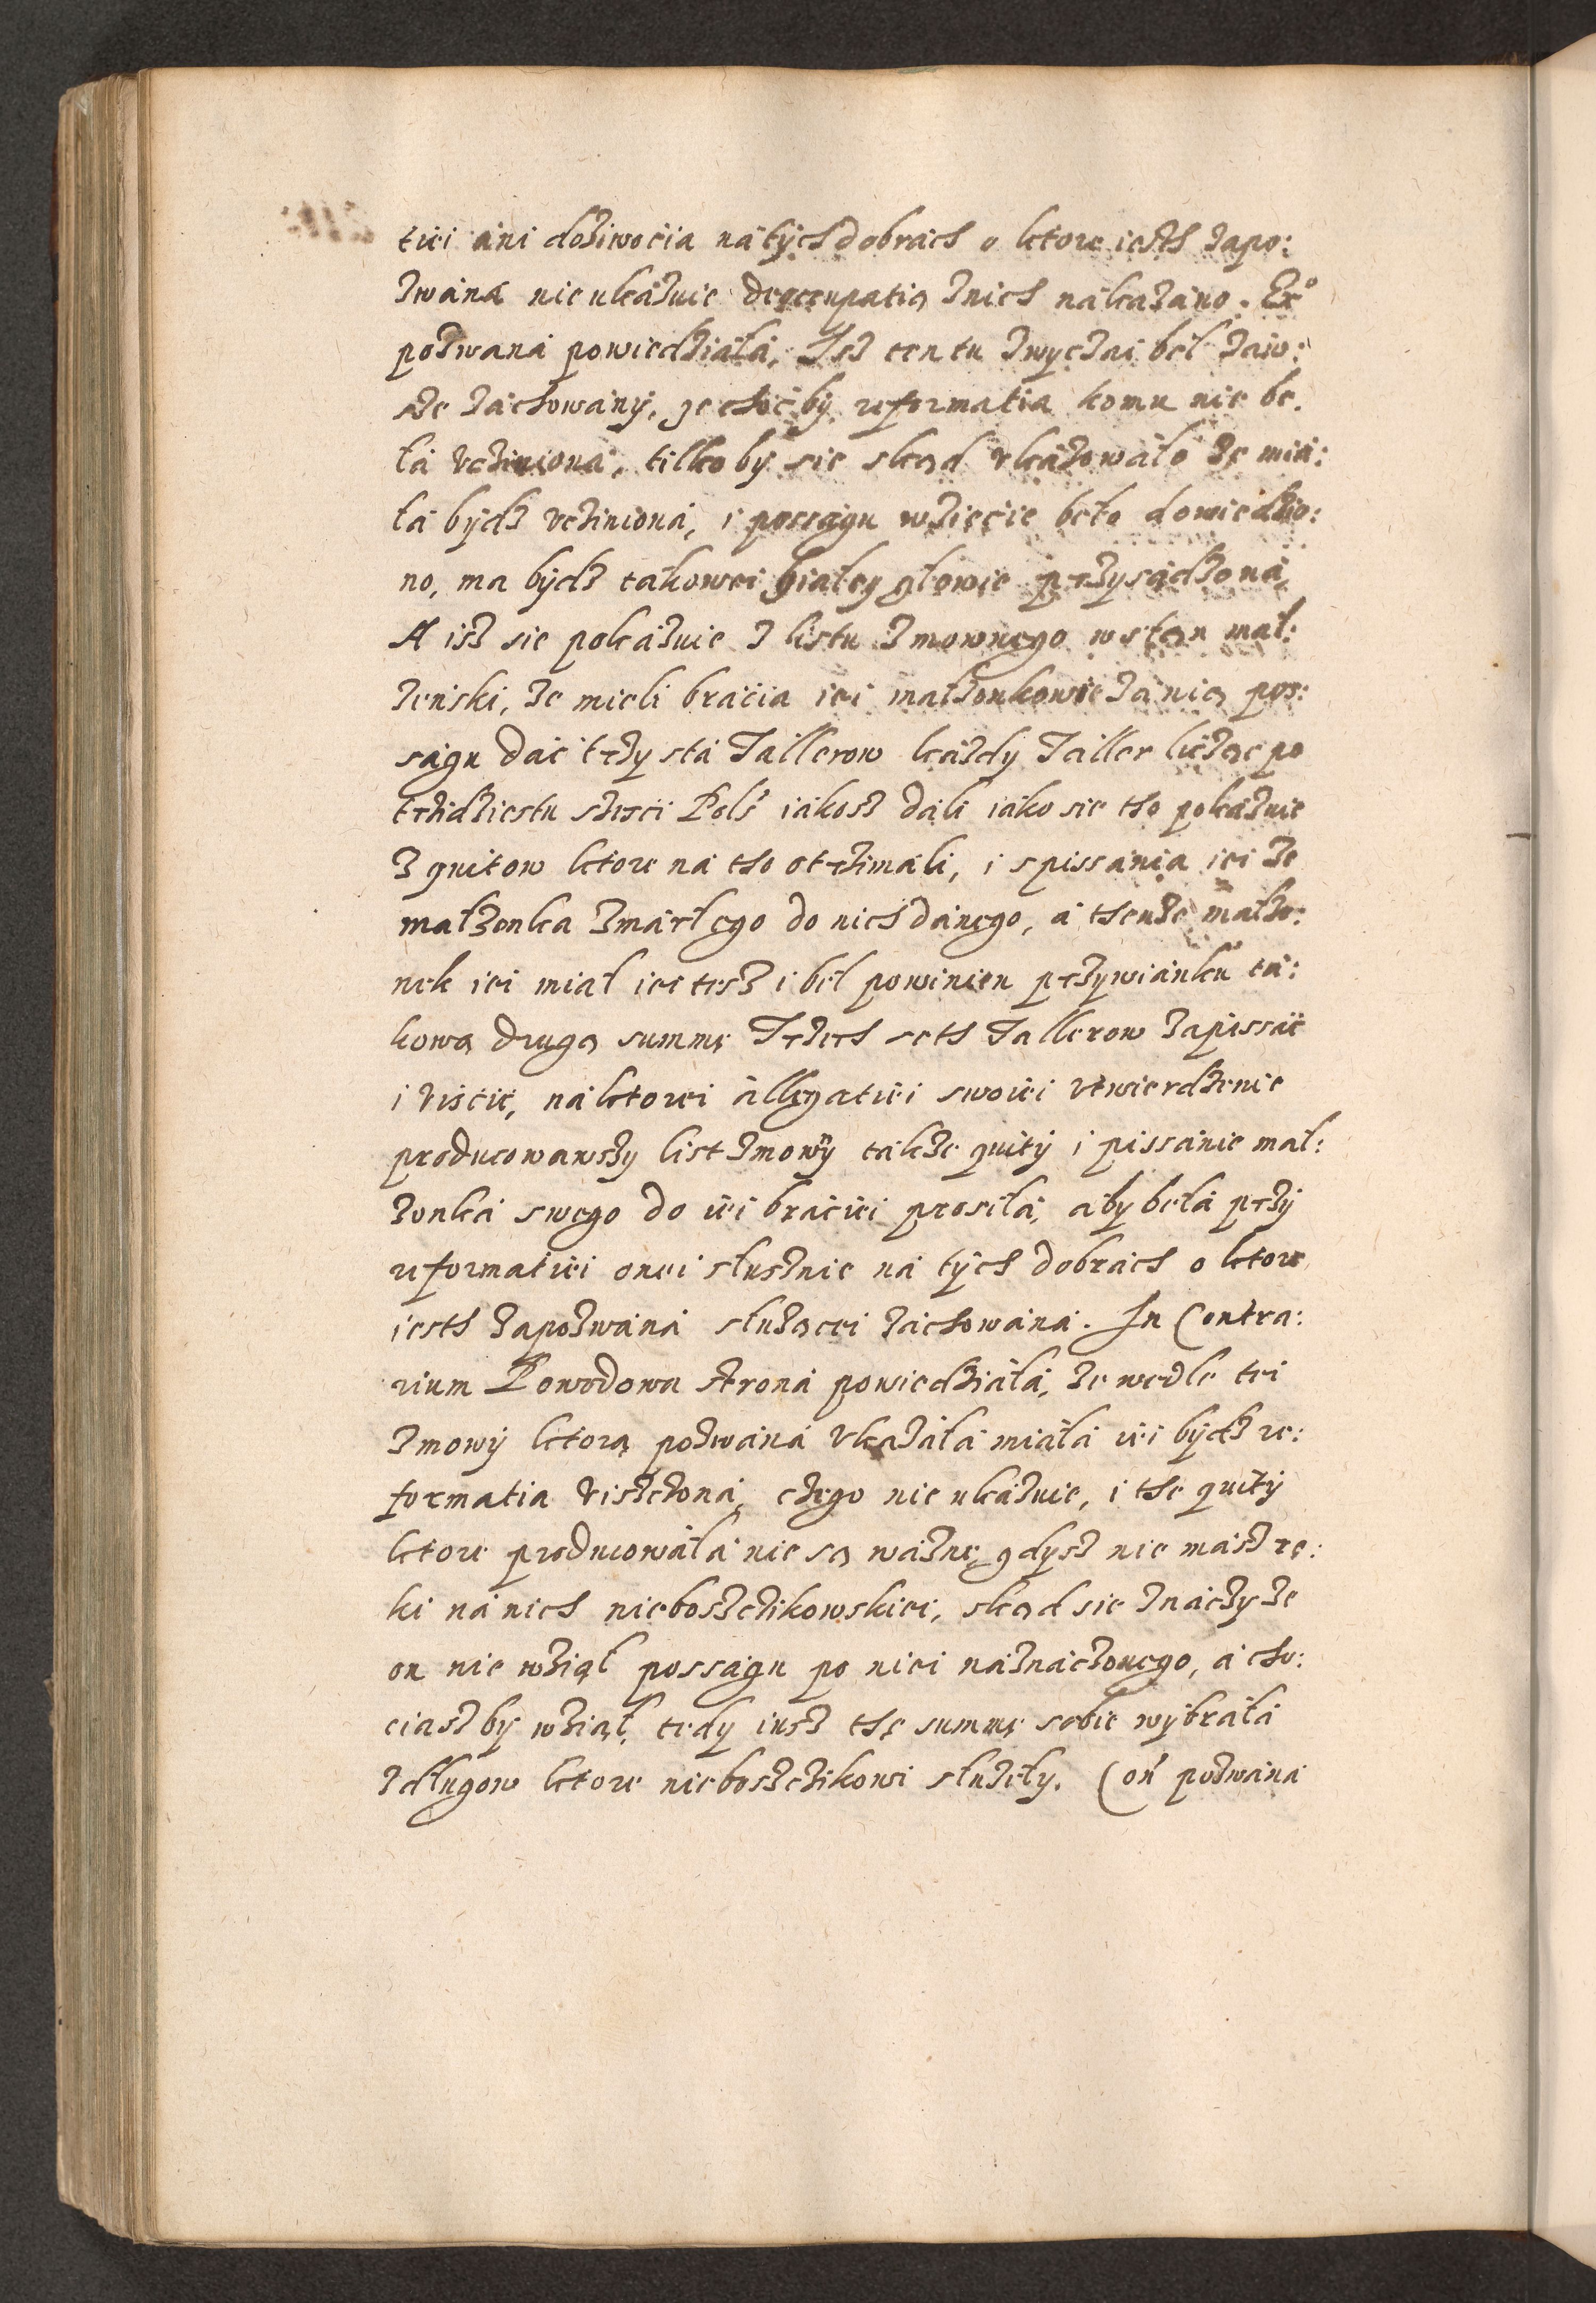 tiei ani dożiwocia na tych dobrach o ktore iesth zapo:
zwana nie ukazuie deoccupatią znich nakazano. Exº
pozwana powiedziała, Isz ten tu zwyczai beł zaw:
sze zachowany, że choćby reformatia komu nie be.
ła vcziniona, tilko by sie skąd vkazowało że mia:
ła bydz vcziniona, i possagu wzięcie beło dowiedzio:
no, ma bydz takowei białey głowie przysądzona,
A isz sie pokazuie z listu zmownego w stan mał:
żenski, że mieli bracia iei małżonkowie za nią pos:
sagu dać trzy sta Tallerow każdy Taller licząc po
trzidziestu sześci Pols iakosz dali iako sie tho pokazuie
z quitow ktore na tho otrzimali, i spissania iei że
małżonka zmarłego do nich danego, a thenże małżo:
nek iei miał iei tesz i beł powinien przywianku ta:
kową drugą summę Trzech seth Tallerow zapissać
i viścić, na ktorei allegatiei swoiei vtwierdzenie
producowawszy list zmowny także quity i pissanie mał:
żonka swego do iei braciei prosiła, aby beła przy
reformatiei onei słusznie na tych dobrach o ktore
iesth zapozwana służącei zachowana. In Contra:
rium Powodowa strona powiedziała, że wedle tei
zmowy ktorą pozwana vkazała miała iei bydz re:
formatia viszczona, czego nie ukazuie, i the quity
ktore producowała nie są ważne, gdysz nie masz rę:
ki na nich nieboszczikowskiei, skąd sie znaczy że
on nie wziął possagu po niei naznaczonego, a cho:
ciasz by wziął, tedy iusz thę summę sobie wybrała
z długow ktore nieboszczikowi służeły. Con pozwana